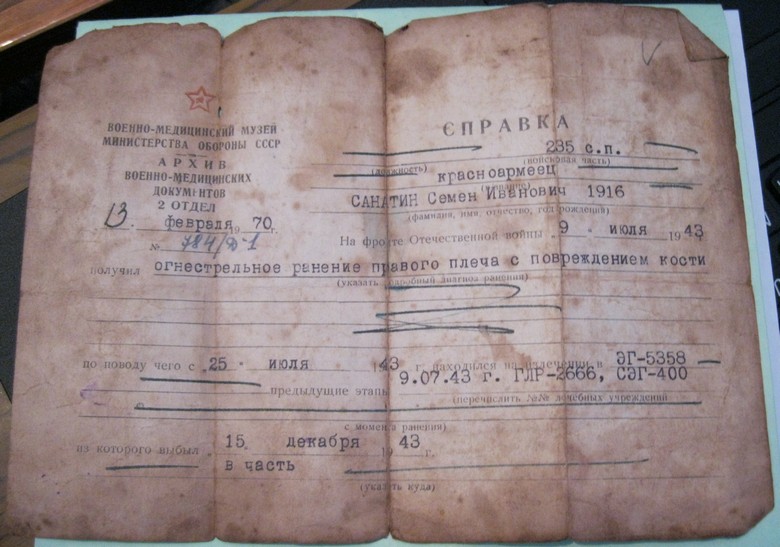 ВОЕННО-МЕДИЦИНСКИЙ МУЗЕЙ
МИНИСТЕРСТВА ОБОРОНЫ СССР
АРХИВ
ВОЕННО-МЕДИЦИНСКИХ
ДОКУМЕНТОВ
2 ОТДЕЛ
13. февраля 1970 г.
№
СПРАВКА
235 с.п.
(должность) (войсковая часть)
красноармеец
(звание)
САНАТИН Семен Иванович 1916
(фамилия, имя, отчество, год рождения)
На фронте Отечественной войны 9 июля 1943
получил огнестрельное ранение правого плеча с повреждением кости
(указать подробный диагноз ранения)
по поводу чего с 25 июля 43 г. находился на излечении в ЭГ-5358
предыдущие этапы 9.07.43 г. ГЛР-2666, СЭГ-400
(перечислить №№ лечебных учреждений
с момента ранения)
из которого выбыл 15 декабря 1943 г.
в часть
(указать куда)